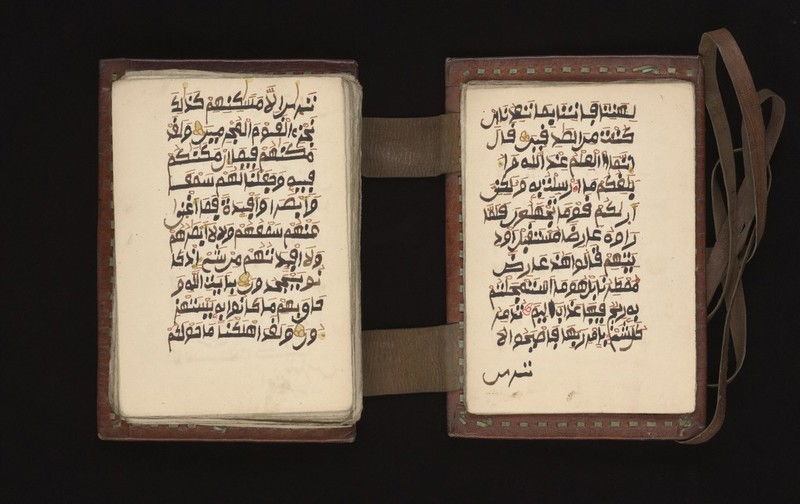 لهتنا فاتنا بما تعدنا إن
كنت من الصدقين قال
إنما العلم عند الله وا
بلغكم ما أرسلت به ولكني
أريكم قوما تجهلون فلما
رأوه عارضا مستقبل أود
يتهم قالوا هذا عارض
ممطرنا بل هو ما استعجلتم
به ريح فيها عذاب أليم تدمر
كل شيء بأمر ربها فأصبحوا لا
ترى إلا مسكنهم كذلك
نجزي القوم المجرمين ولقد
مكنهم فيما إن مكنكم
فيه وجعلنا لهم سمعا
وأبصرا وأفئدة فما أغنى
عنهم سمعهم ولا أبصرهم
ولا أفئدتهم من شيء إذ كا
نوا يجحدون بئايت الله و
حاق بهم ما كانوا به يستهز
ءون ولقد أهلكنا ما حولكم